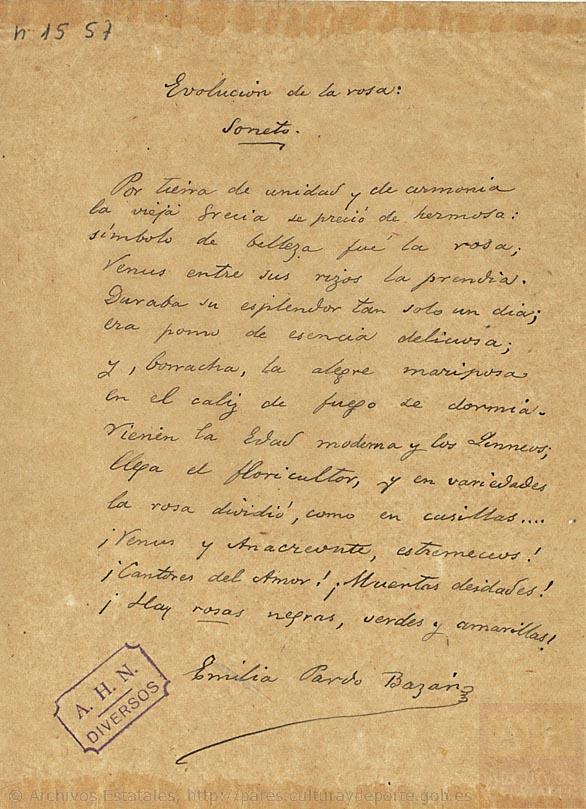 n 15 57
Evolución de la rosa:
Soneto.
Por tierra de unidad y de armonia
la vieja Grecia se preció de hermosa:
símbolo de belleza fué la rosa;
Venus entre sus rizos la prendia.
Duraba su esplendor tan solo un dia;
era pomo de esencia deliciosa;
y, borracha, la alegre mariposa
en el caliz de fuego se dormia.
Vienen la Edad moderna y los Linneos;
llega el floricultor, y en variedades
la rosa dividió, como en casillas....
¡Venus y Anacreonte, estremeceos!
¡Cantores del Amor! ¡Muertas deidades!
¡Hay rosas negras, verdes y amarillas!
Emilia Pardo Bazán
A. H. N.
DIVERSOS
© Archivos Estatales, http://pares.culturaydeporte.gob.es